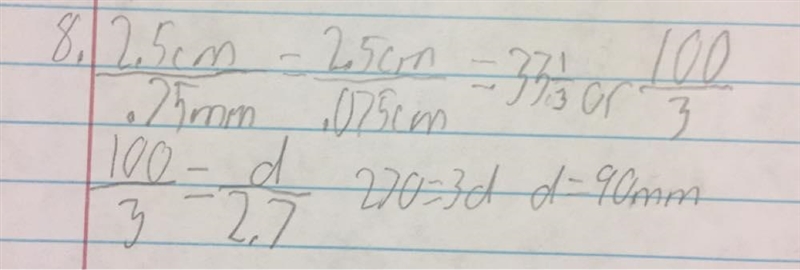 8. 2.5cm/.75mm = 2.5cm/.075cm = 33 1/3 or 100/3
100/3 = d/2.7 270=3d d=90mm